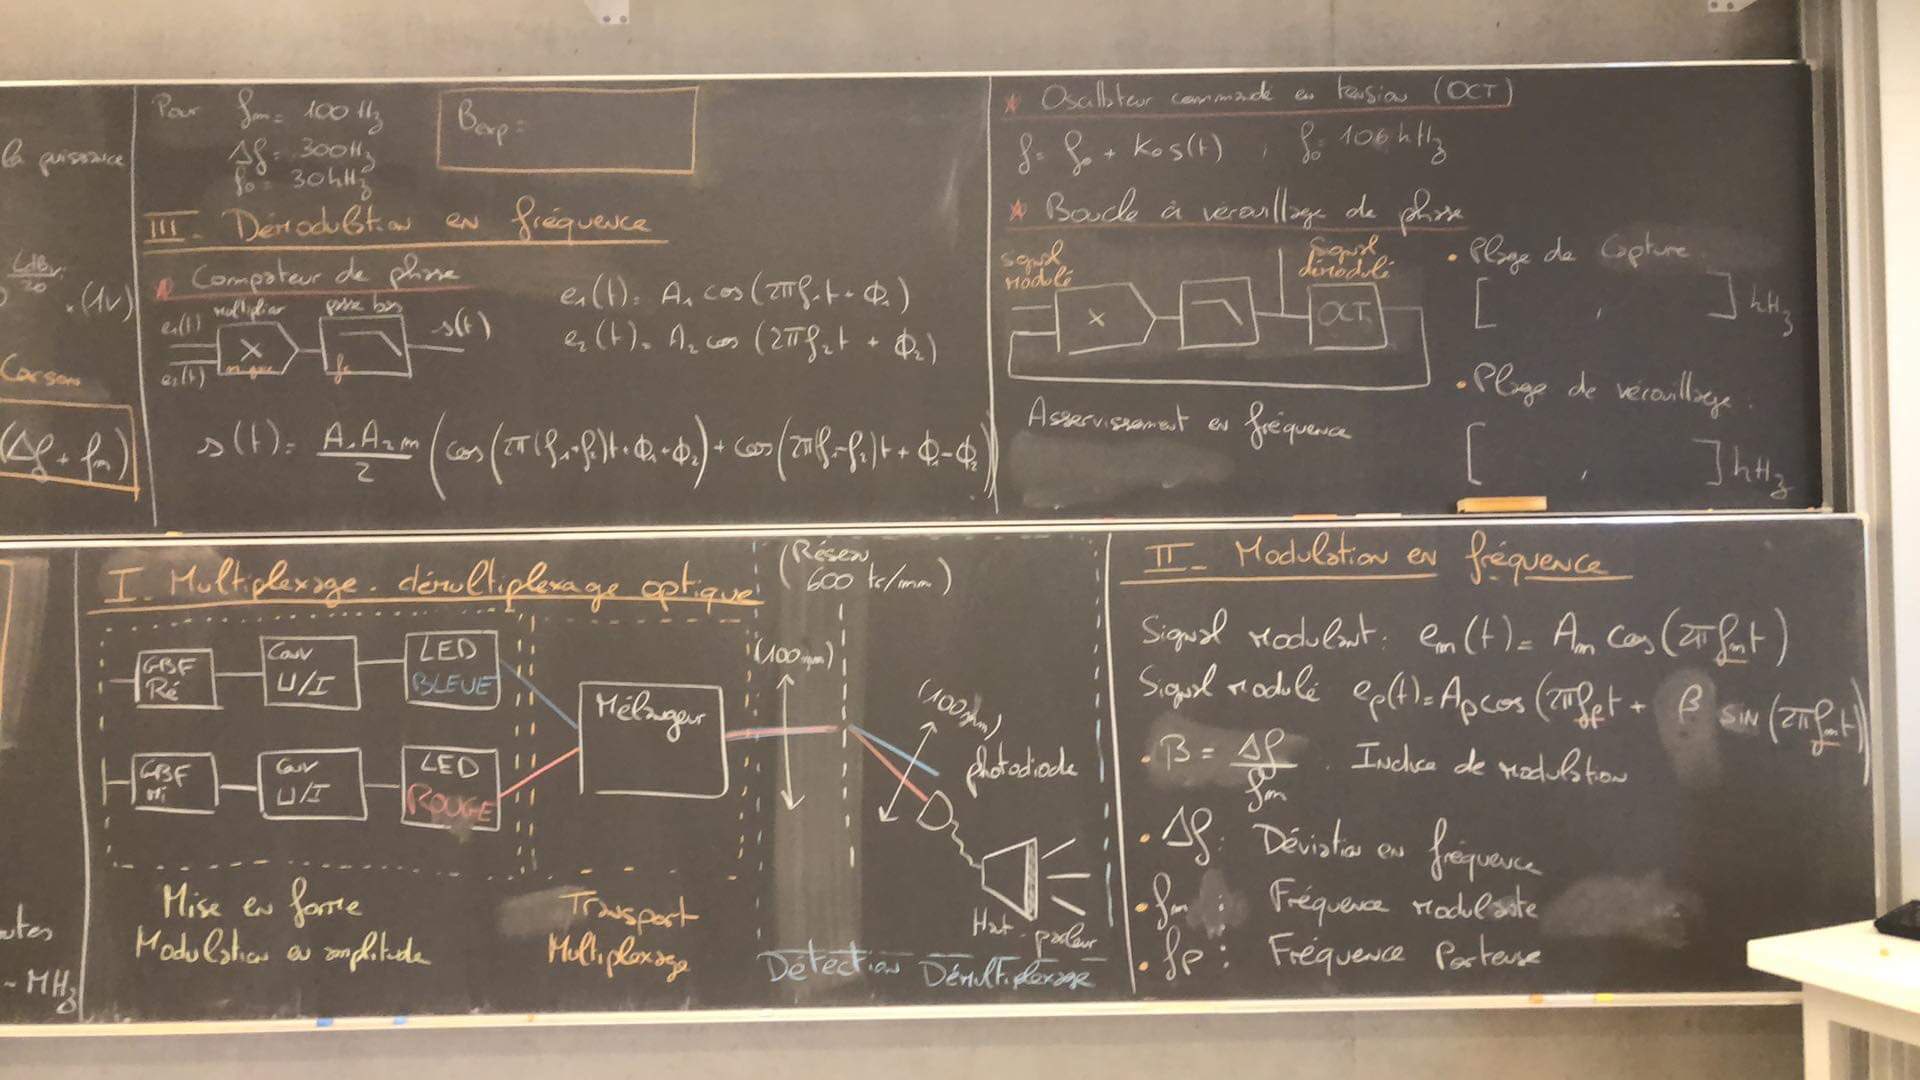 la puissance
. (1V)
Carson
(Δf + fm)
Pour fm = 100 Hz
Δf = 300Hz
f0 = 30kHz
Bexp =
III. Démodulation en fréquence
* Comparateur de phase
multiplieur
passe bas
e1(t)
e2(t)
X
fc
s(t)
e1(t) = A1 cos(2πf1t + Φ1)
e2(t) = A2 cos(2πf2t + Φ2)
s(t) = A1A2m/2 (cos(2π(f1+f2)t+Φ1+Φ2) + cos(2π(f1-f2)t + Φ1-Φ2))
* Oscillateur commandé en tension (OCT)
f = f0 + K0s(t) ; f0 = 106 kHz
* Boucle à vérouillage de phase
signal modulé
signal démodulé
X
OCT
Asservissement en fréquence
• Plage de Capture
[ , ] kHz
• Plage de vérouillage :
[ , ] kHz
~ MHz
I. Multiplexage - démultiplexage optique
(Réseau
600 tr/mm)
GBF
Ré
Conv
U/I
LED
BLEUE
GBF
Mi
Conv
U/I
LED
ROUGE
Mélangeur
(100mm)
(100mm)
photodiode
Haut-parleur
Mise en forme
Modulation en amplitude
Transport
Multiplexage
Détection Démultiplexage
II. Modulation en fréquence
Signal modulant : em(t) = Am cos(2πfmt)
Signal modulé ep(t) = Ap cos(2πfpt + β SIN(2πfmt))
• β = Δf/fm . Indice de modulation
• Δf : Déviation en fréquence
• fm : Fréquence modulante
• fp : Fréquence Porteuse